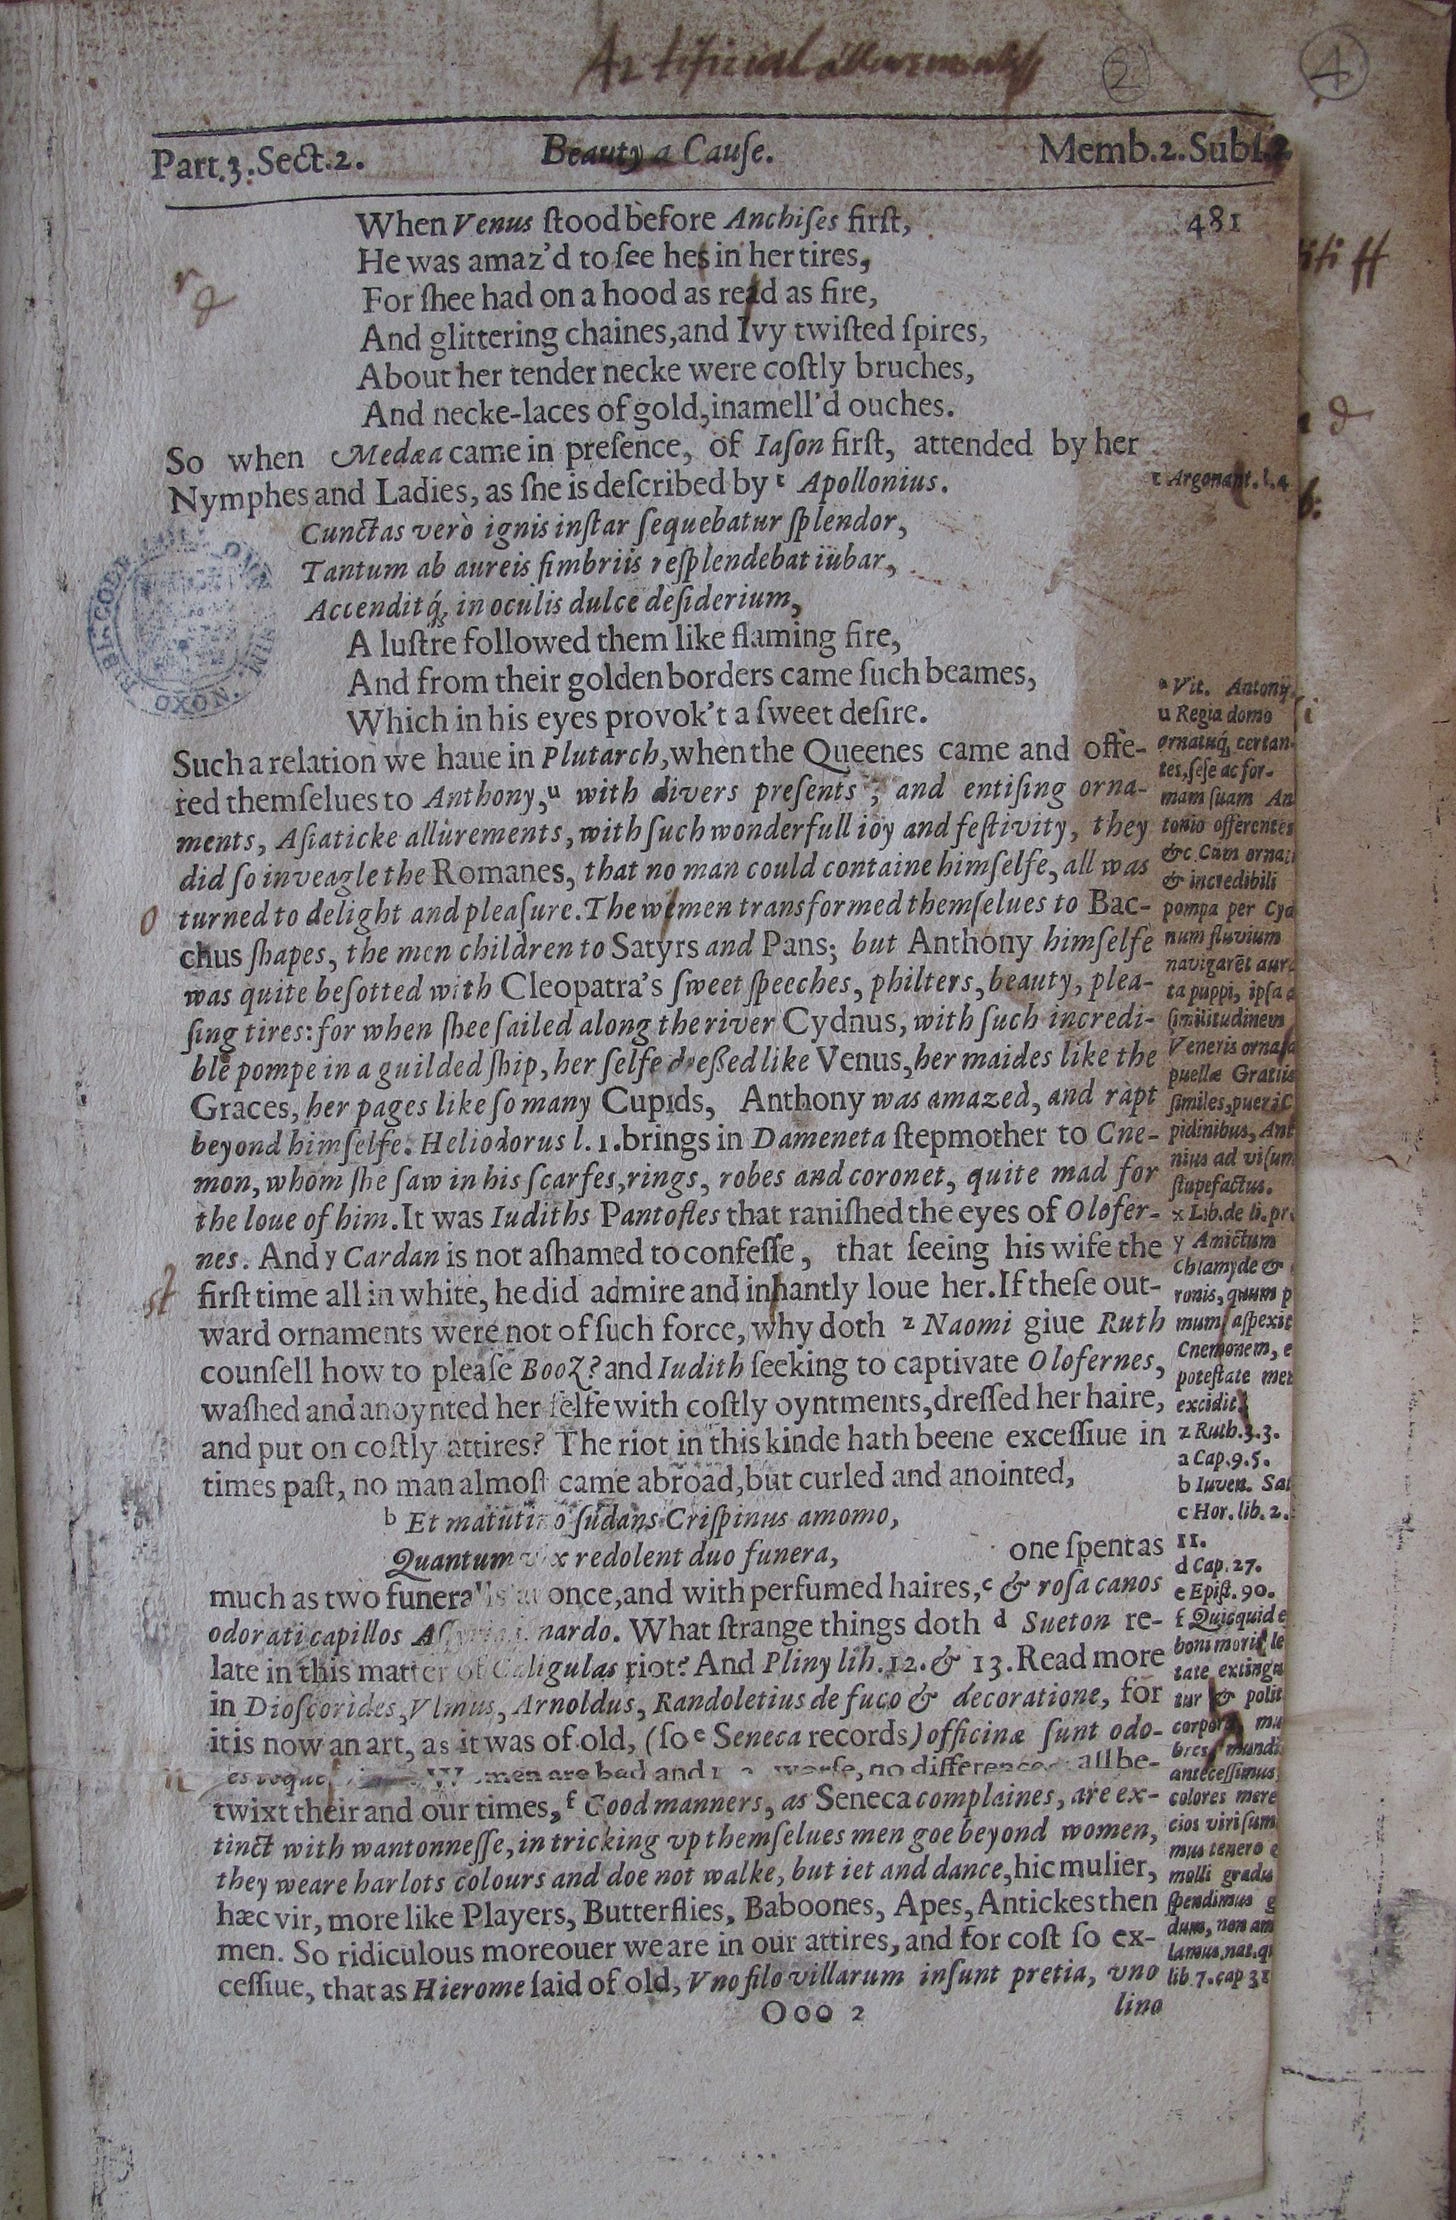 Artificial allurements
2
4
Part.3.Sect.2. Beauty a Cauſe. Memb.2.Subſ.
481
When Venus ſtood before Anchiſes firſt,
He was amaz'd to ſee hes in her tires,
For ſhee had on a hood as read as fire,
And glittering chaines,and Ivy twiſted ſpires,
About her tender necke were coſtly bruches,
And necke-laces of gold,inamell'd ouches.
So when Medæa came in preſence, of Iaſon firſt, attended by her
Nymphes and Ladies, as ſhe is deſcribed by t Apollonius.
Cunctas verò ignis inſtar ſequebatur ſplendor,
Tantum ab aureis fimbriis reſplendebat iubar,
Accenditq́; in oculis dulce deſiderium,
A luſtre followed them like flaming fire,
And from their golden borders came ſuch beames,
Which in his eyes provok't a ſweet deſire.
Such a relation we haue in Plutarch,when the Queenes came and offe-
red themſelues to Anthony,u with divers preſents, and entiſing orna-
ments, Aſiaticke allurements, with ſuch wonderfull ioy and feſtivity, they
did ſo inveagle the Romanes, that no man could containe himſelfe, all was
turned to delight and pleaſure.The wemen transformed themſelues to Bac-
chus ſhapes, the men children to Satyrs and Pans; but Anthony himſelfe
was quite beſotted with Cleopatra's ſweet ſpeeches, philters, beauty, plea-
ſing tires:for when ſhee ſailed along the river Cydnus, with ſuch incredi-
ble pompe in a guilded ſhip, her ſelfe dreßed like Venus,her maides like the
Graces, her pages like ſo many Cupids, Anthony was amazed, and rapt
beyond himſelfe. Heliodorus l. 1.brings in Dameneta ſtepmother to Cne-
mon, whom ſhe ſaw in his ſcarfes,rings, robes and coronet, quite mad for
the loue of him.It was Iudiths Pantofles that raniſhed the eyes of Olofer-
nes. And y Cardan is not aſhamed to confeſſe, that ſeeing his wife the
firſt time all in white, he did admire and inhantly loue her.If theſe out-
ward ornaments were not of ſuch force, why doth z Naomi giue Ruth
counſell how to pleaſe Booz? and Iudith ſeeking to captivate Olofernes,
waſhed and anoynted her ſelfe with coſtly oyntments,dreſſed her haire,
and put on coſtly attires? The riot in this kinde hath beene exceſſiue in
times paſt, no man almoſt came abroad,but curled and anointed,
b Et matutino ſudans Criſpinus amomo,
Quantum vix redolent duo funera, one ſpent as
much as two funeralls at once,and with perfumed haires,c & roſa canos
odorati capillos Aſſyriaq́; nardo. What ſtrange things doth d Sueton re-
late in this matter of Caligulas riot? And Pliny lib.12.& 13.Read more
in Dioſcorides,Vlmus, Arnoldus, Randoletius de fuco & decoratione, for
it is now an art, as it was of old, (ſo e Seneca records) officinæ ſunt odo-
Women are bad and worſe, no difference all be-
twixt their and our times,f Good manners, as Seneca complaines, are ex-
tinct with wantonneſſe, in tricking vp themſelues men goe beyond women,
they weare harlots colours and doe not walke, but iet and dance,hic mulier,
hæc vir, more like Players, Butterflies, Baboones, Apes, Antickes then
men. So ridiculous moreouer we are in our attires, and for coſt ſo ex-
ceſſiue, that as Hierome ſaid of old, Vno filo villarum inſunt pretia, vno
Ooo 2 lino
t Argonaut. l.4
a Vit. Antony.
u Regia domo
ornatuq́; certan-
tes,ſeſe ac for-
mam ſuam An
tonio offerentes
&c Cum ornatu
& incredibili
pompa per Cyd
num fluvium
navigarēt aura
ta puppi, ipſa a
ſimilitudinem
Veneris ornata
puellæ Gratiis
ſimiles,pueri C
pidinibus, Ant
nius ad viſum
ſtupefactus.
x Lib.de li.pr.
y Amictum
Chlamyde &
ronis, quum p
mum aſpexit
Cnemonem, e
poteſtate men
excidit.
z Ruth.3.3.
a Cap.9.5.
b Iuven. Sat
c Hor. lib. 2.
11.
d Cap. 27.
e Epiſt. 90.
f Quicquid e
boni moris le
tate extingu
tur & polit
corporum mu
bres mundi
anteceſſimus
colores mere
cios viri ſum
mus tenero e
molli gradu
ſpendimus g
dum, non am
lamus.nat.qu
lib 7.cap 31